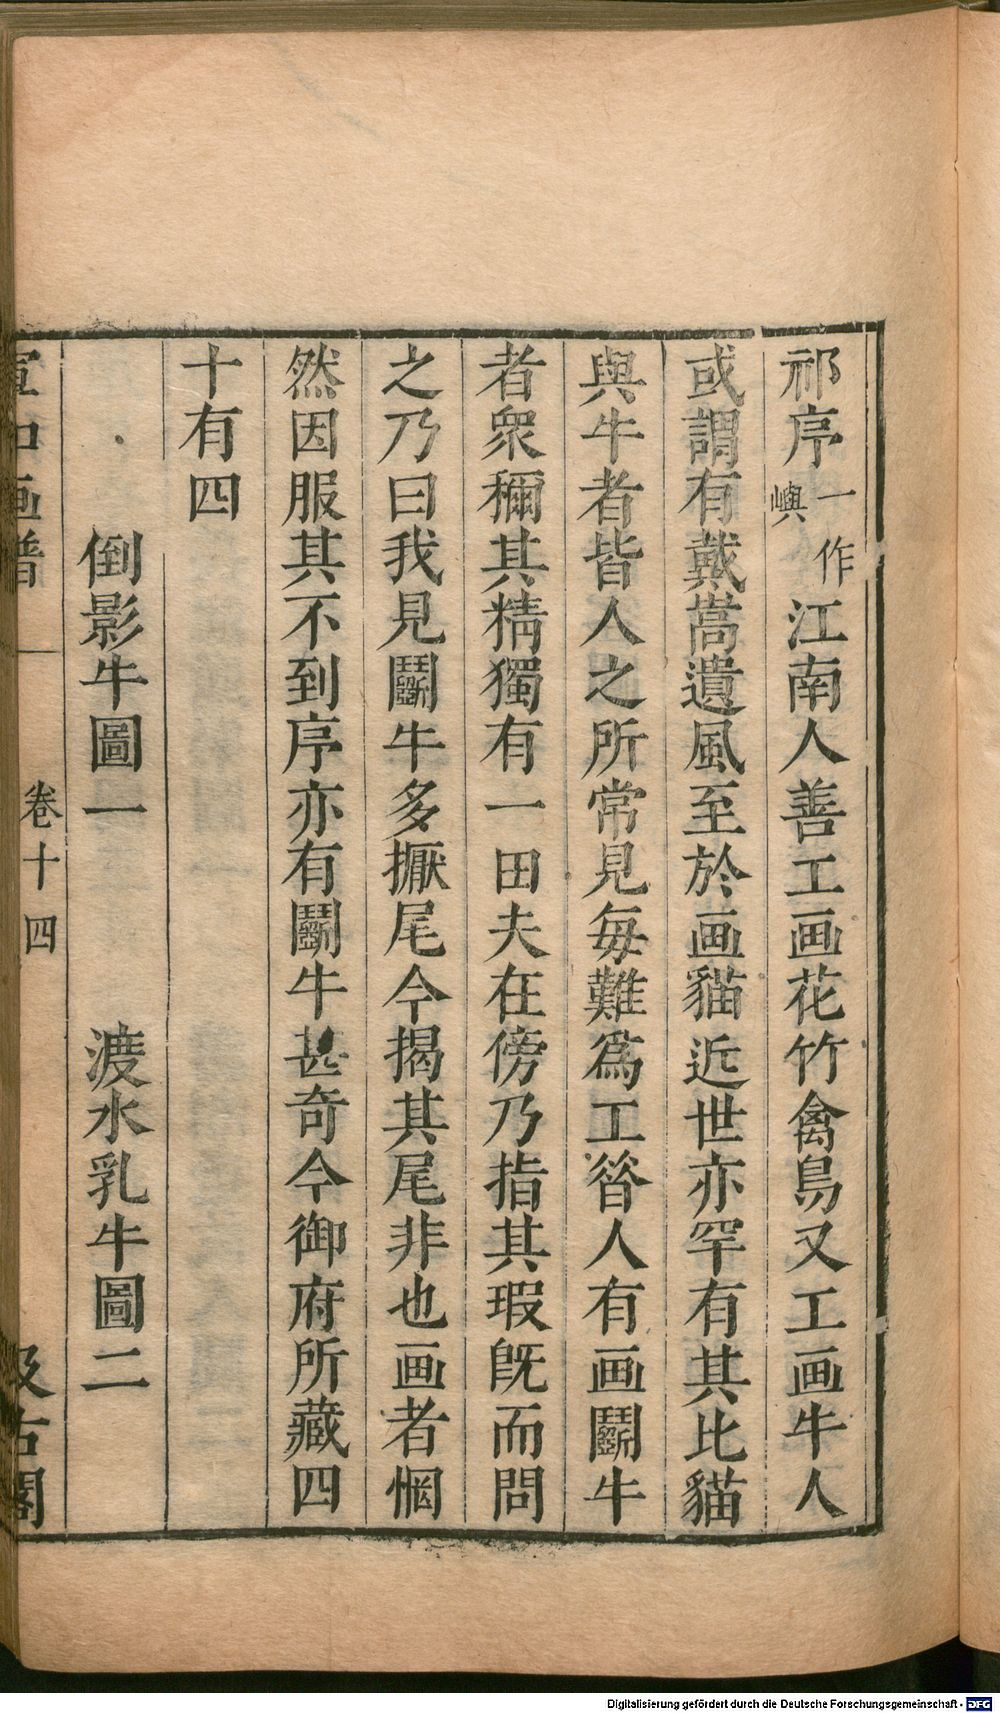 祁序一作嶼江南人善工画花竹禽鳥又工画牛人
或謂有戴嵩遺風至於画貓近世亦罕有其比貓
與牛者皆人之所常見每難爲工昝人有画鬬牛
者衆穪其精獨有一田夫在傍乃指其瑕旣而問
之乃曰我見鬬牛多撅尾今揭其尾非也画者惘
然因服其不到序亦有鬬牛甚奇今御府所藏四
十有四
倒影牛圖一 渡水乳牛圖二
宣和画譜 卷十四 汲古閣
Digitalisierung gefördert durch die Deutsche Forschungsgemeinschaft - DFG